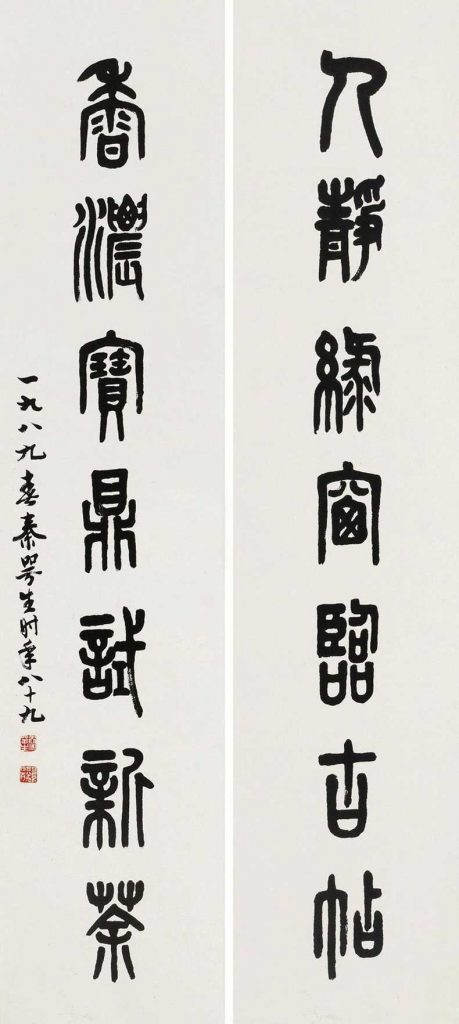 人靜綠窗臨古帖
香濃寶鼎試新茶
一九八九春秦咢生时年八十九